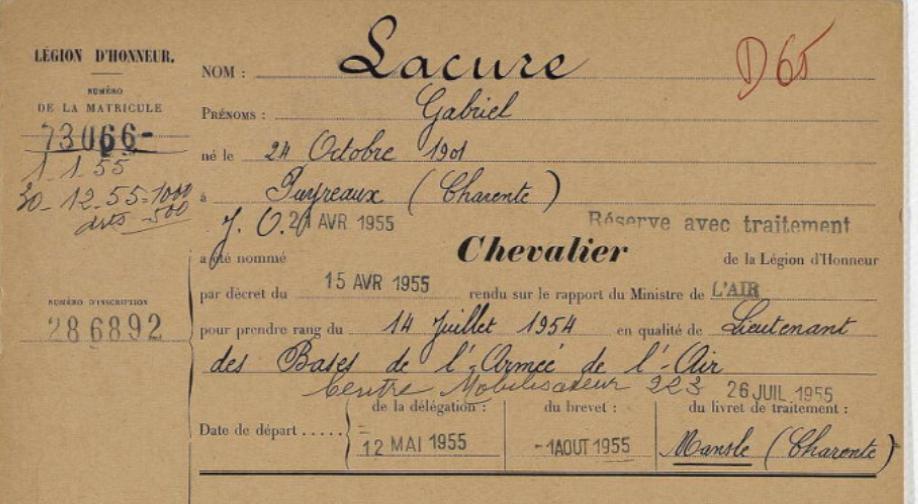 LÉGION D'HONNEUR.
NUMÉRO
DE LA MATRICULE
73066-
1_1_55
30_12_55=1000
dts 500
NUMÉRO D'INSCRIPTION
286892
D65
NOM : Lacure
PRÉNOMS : Gabriel
né le 24 Octobre 1901
à Puyreaux (Charente)
J.O. 21 AVR 1955 Réserve avec traitement
a été nommé Chevalier de la Légion d'Honneur
par décret du 15 AVR 1955 rendu sur le rapport du Ministre de L'AIR
pour prendre rang du 14 Juillet 1954 en qualité de Lieutenant
des Bases de l'Armée de l'Air
Centre Mobilisateur 223 26 JUIL 1955
de la délégation : du brevet : du livret de traitement :
Date de départ .....
12 MAI 1955 -1 AOUT 1955 Mansle (Charente)